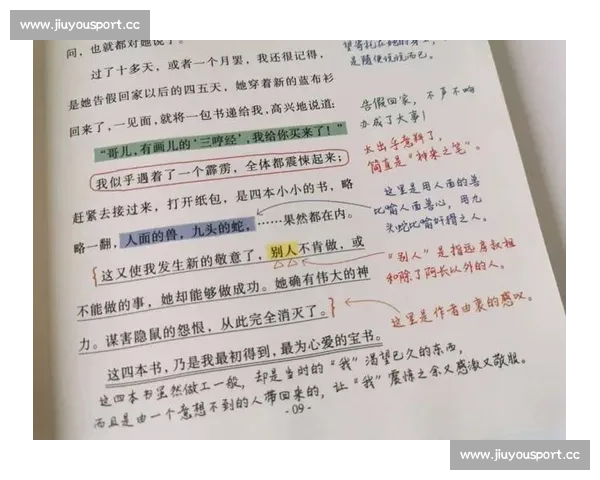 www.jiuyousport.cc
问,也就都对她说了。
过了十多天,或者一个月罢,我还很记得,
是她告假回家以后的四五天,她穿着新的蓝布衫
回来了,一见面,就将一包书递给我,高兴地说道:
“哥儿,有画儿的‘三哼经’,我给你买来了!”
我似乎遇着了一个霹雳,全体都震悚起来;
赶紧去接过来,打开纸包,是四本小小的书,略
略一翻,人面的兽,九头的蛇,……果然都在内。
这又使我发生新的敬意了,别人不肯做,或
不能做的事,她却能够做成功。她确有伟大的神
力。谋害隐鼠的怨恨,从此完全消灭了。
这四本书,乃是我最初得到,最为心爱的宝书。
这四本书虽然做工一般,却是当时的“我”渴望已久的东西,
而且是由一个意想不到的人带回来的,让“我”震惊之余又感激又敬服。
·09·
是随便说说而已。
告假回家,不声不响
办成了大事!
太出乎意料了,
简直是“神来之笔”。
这里是用人面的兽
比喻人面兽心,用九
头蛇比喻奸猾之人。
“别人”是指远房叔祖
和除了阿长以外的人。
这里是作者由衷的感叹。
www.jiuyousport.cc